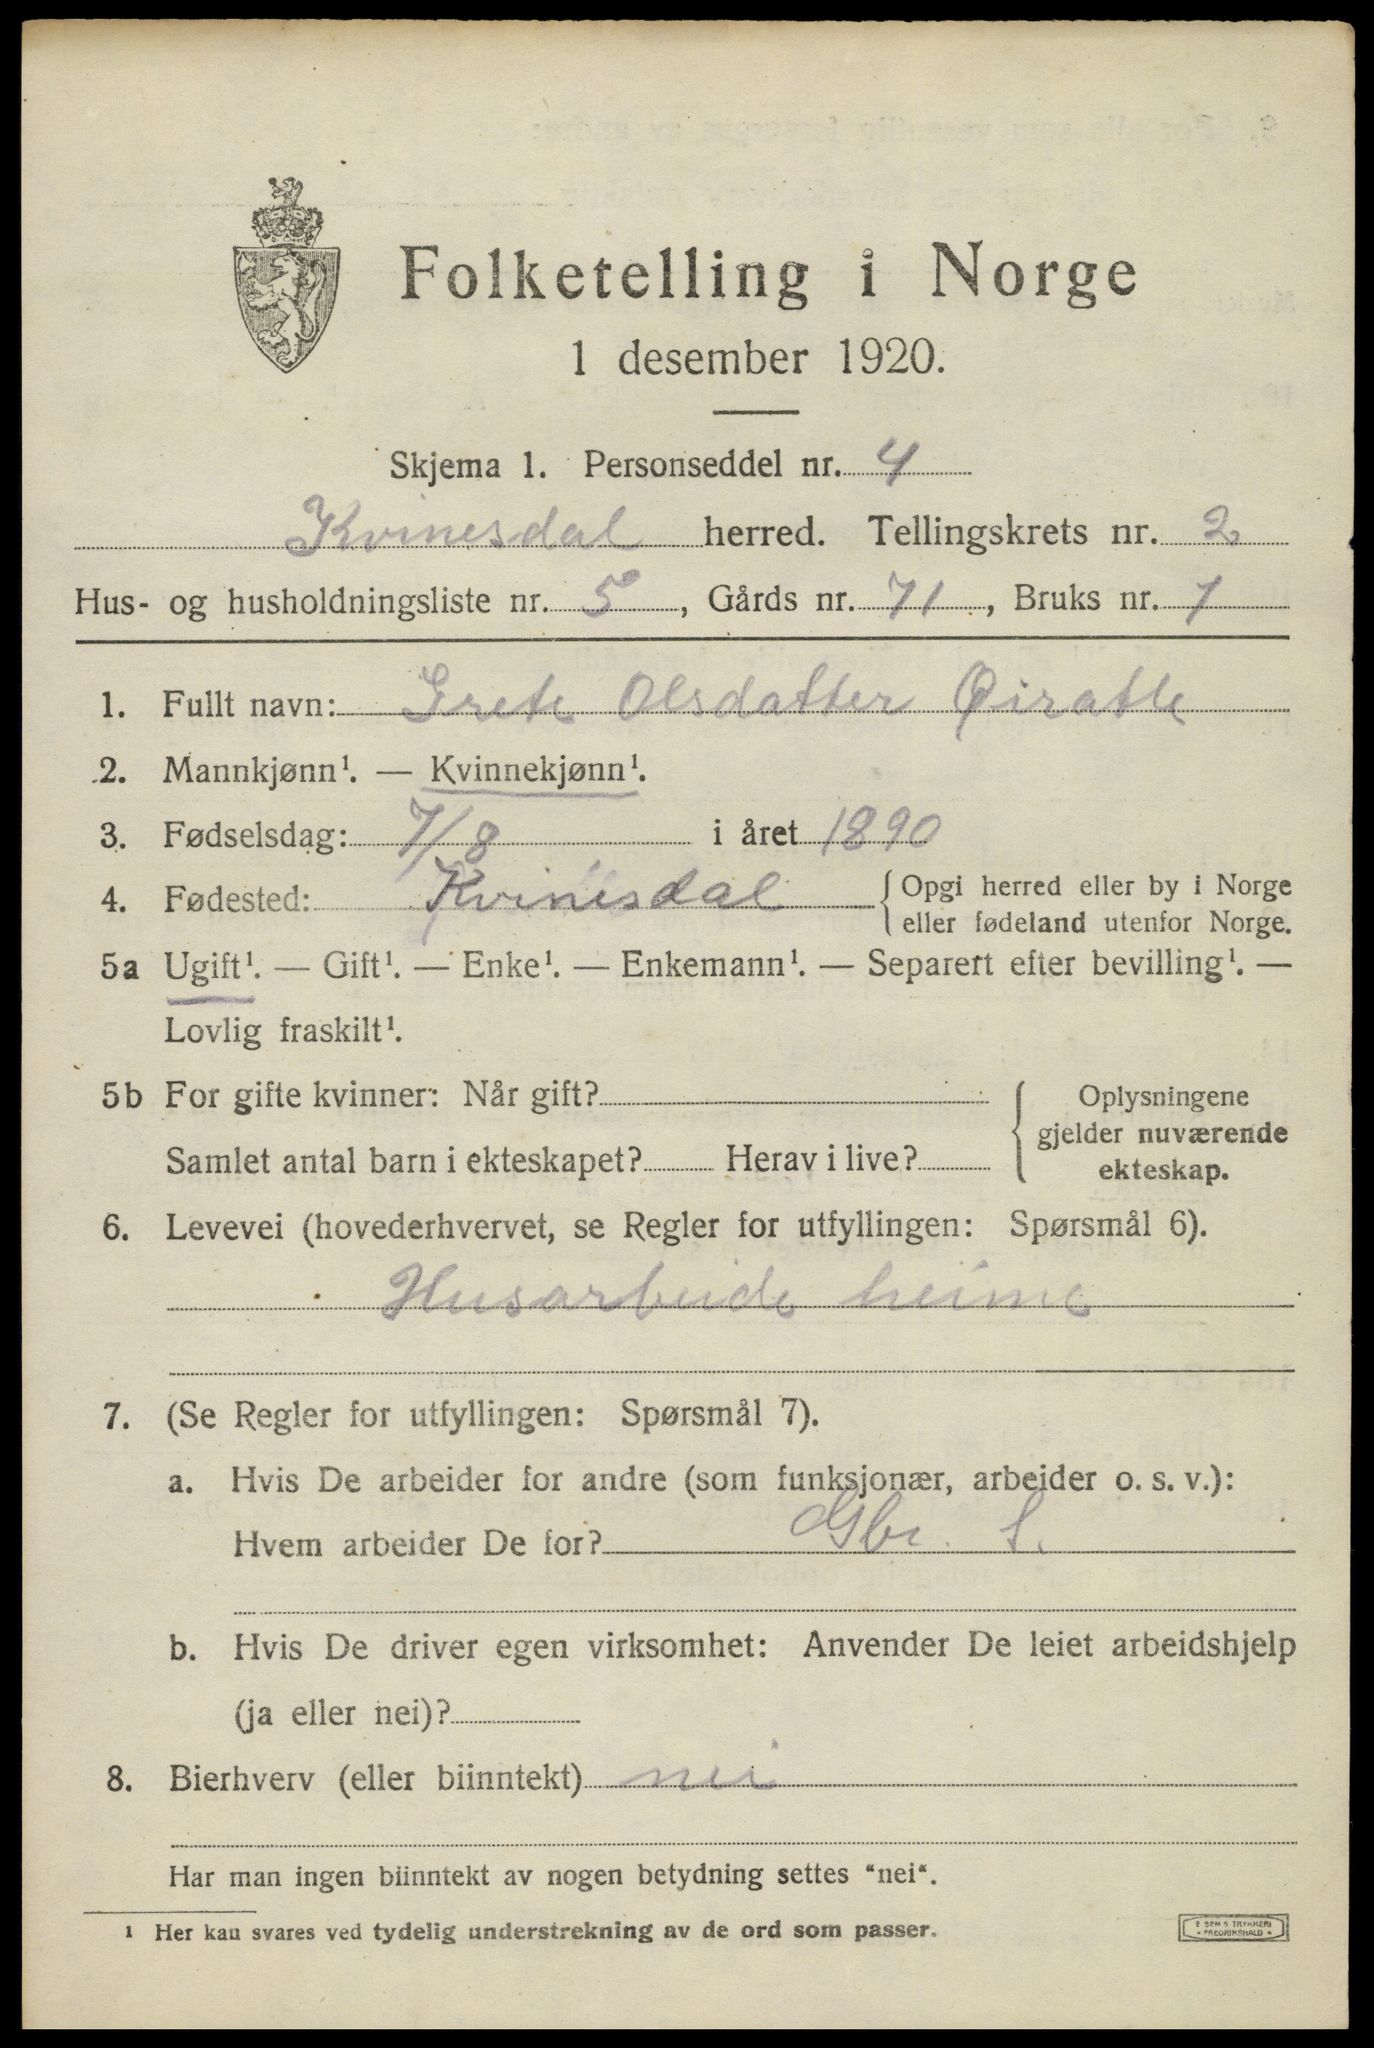 Folketelling i Norge
1 desember 1920.
Skjema 1. Personseddel nr. 4
Kvinesdal herred. Tellingskrets nr. 2
Hus- og husholdningsliste nr. 5, Gårds nr. 71, Bruks nr. 1
1. Fullt navn: Grete Olsdatter Øiratle
2. Mannkjønn¹. — Kvinnekjønn¹.
3. Fødselsdag: 7/8 i året 1890
4. Fødested: Kvinesdal { Opgi herred eller by i Norge
eller fødeland utenfor Norge.
5a Ugift¹. — Gift¹. — Enke¹. — Enkemann¹. — Separert efter bevilling¹. —
Lovlig fraskilt¹.
5b For gifte kvinner: Når gift?
Samlet antal barn i ekteskapet? Herav i live?
Oplysningene
gjelder nuværende
ekteskap.
6. Levevei (hovederhvervet, se Regler for utfyllingen: Spørsmål 6).
Husarbeide heime
7. (Se Regler for utfyllingen: Spørsmål 7).
a. Hvis De arbeider for andre (som funksjonær, arbeider o. s. v.):
Hvem arbeider De for? Gbr. S.
b. Hvis De driver egen virksomhet: Anvender De leiet arbeidshjelp
(ja eller nei)?
8. Bierhverv (eller biinntekt) nei
Har man ingen biinntekt av nogen betydning settes "nei".
¹ Her kan svares ved tydelig understrekning av de ord som passer.